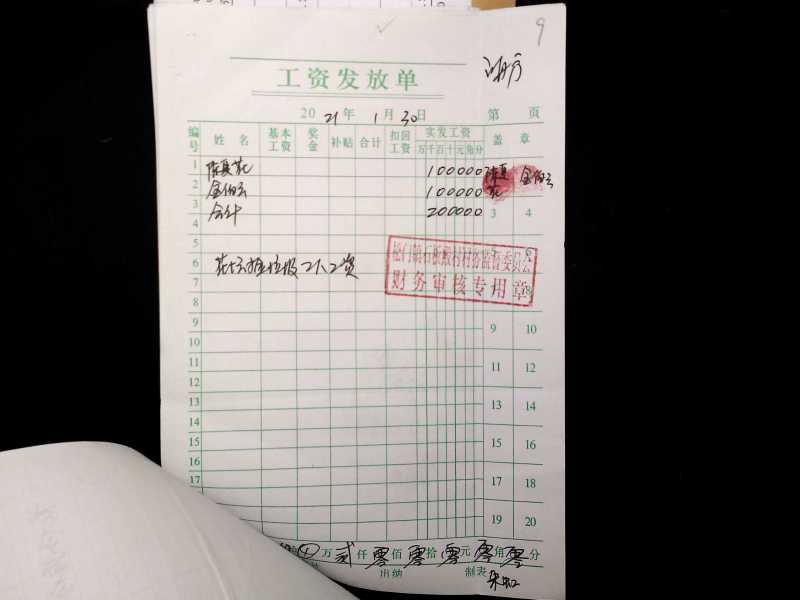 9
工资发放单
2021年1月30日 第 页
编号 姓名 基本工资 奖金 补贴 合计 扣回工资 实发工资 盖章
万千百十元角分
1 陈夏花 100000 陈夏花 金伯云
2 金伯云 100000
3 合计 200000 3 4
4
5 5 6
6 工资
松门镇石板殿村村务监督委员会
财务审核专用章
7 8
8
9 9 10
10
11 11 12
12
13 13 14
14
15 15 16
16
17 17 18
19 20
万贰仟零佰零拾零元零角零分
出纳 制表